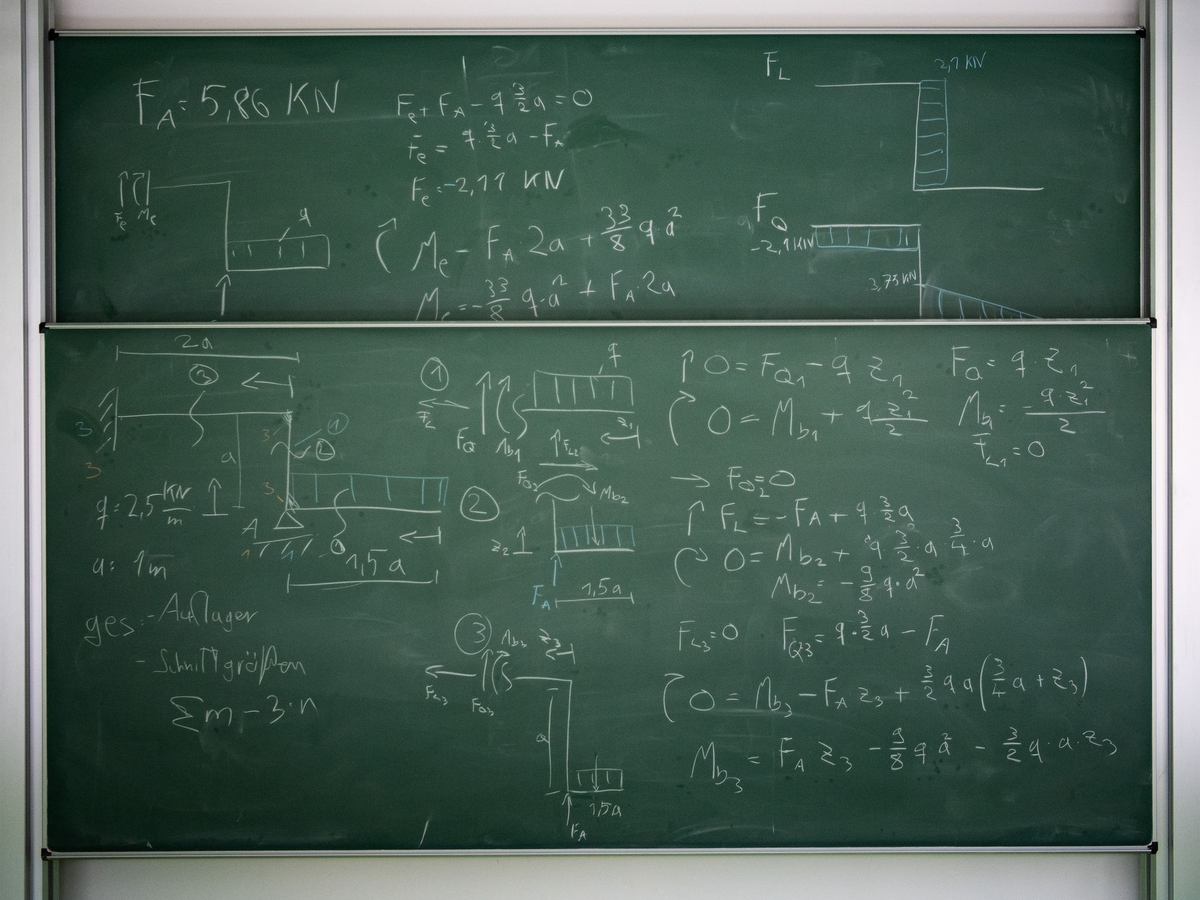 F_A = 5,86 KN
F_e + F_A - q 3/2 a = 0
F_e = q · 3/2 a - F_A
F_e = -2,11 KN
F_e M_e
q
M_e - F_A · 2a + 33/8 q a²
M_e = -33/8 q · a² + F_A · 2a
F_L
2,1 KN
F_Q
-2,1 KN
3,75 KN
2a
3
1
2
3
3
3
3
a
q = 2,5 KN/m
A
1
1
1,5 a
a = 1m
ges: - Auflager
- Schnittgrößen
Σm - 3·n
1
q
F_Q M_b1
z_1
2
F_L2
F_Q2
M_b2
z_2
F_A
1,5a
3
M_b3
z_3
F_L3
F_Q3
a
1,5a
F_A
↑ 0 = F_Q1 - q z_1
F_Q = q · z_1
0 = M_b1 + q z_1²/2
M_b1 = - q · z_1²/2
F_L1 = 0
→ F_Q2 = 0
↑ F_L = - F_A + q 3/2 a
0 = M_b2 + q 3/2 · a 3/4 · a
M_b2 = - 9/8 q · a²
F_L3 = 0
F_Q3 = q · 3/2 a - F_A
0 = M_b3 - F_A z_3 + 3/2 q a (3/4 a + z_3)
M_b3 = F_A z_3 - 9/8 q a² - 3/2 q · a · z_3